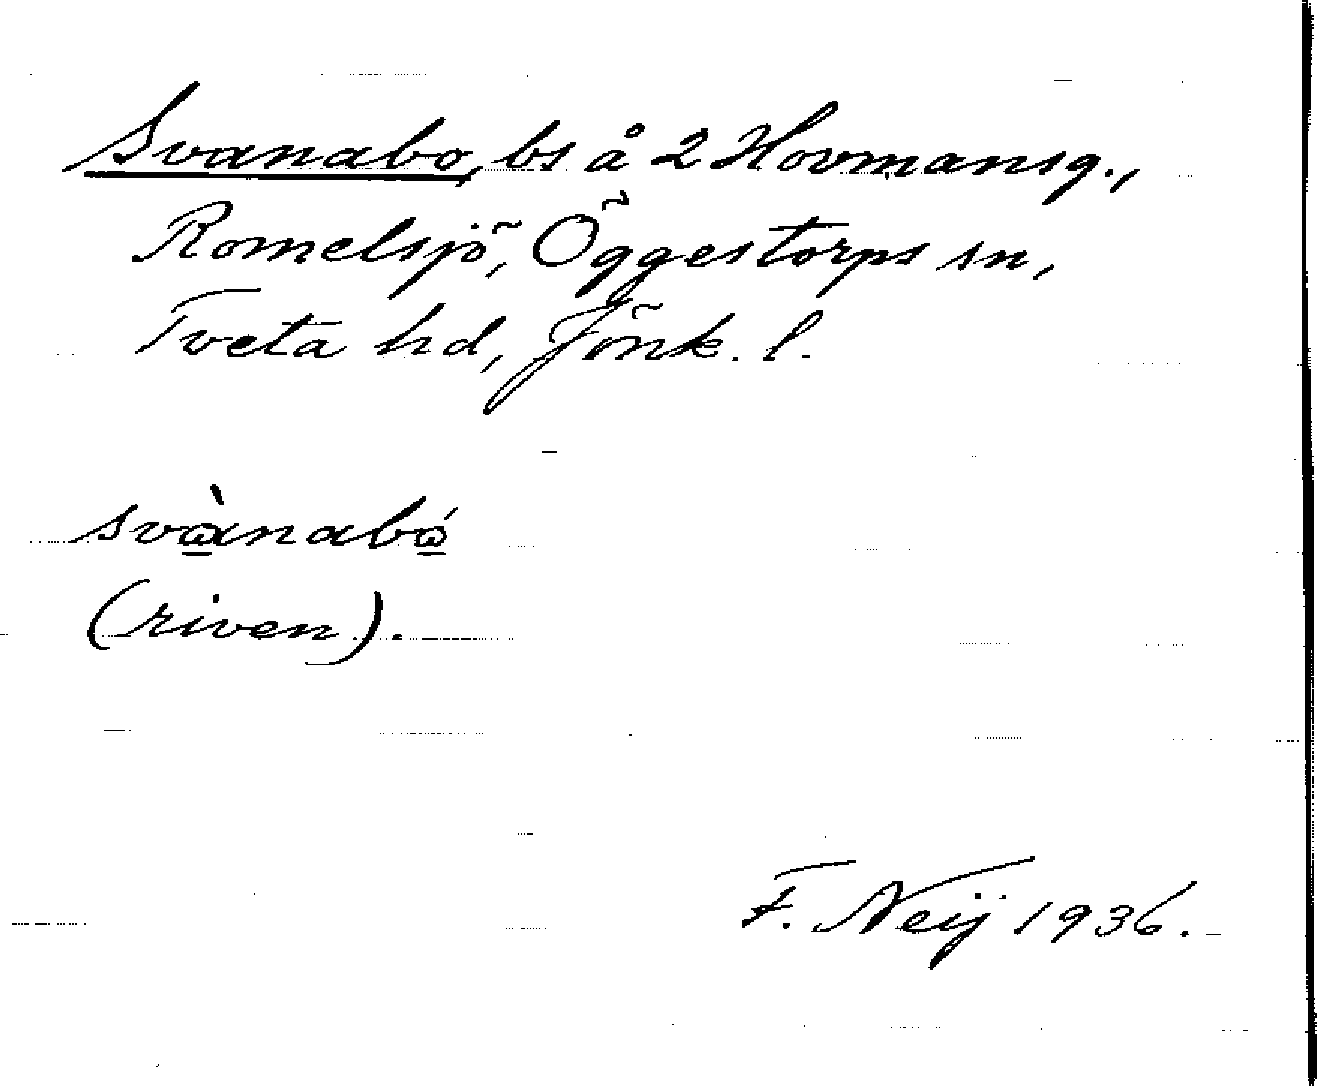 Svanabo, bs å 2 Hovmansg.,
Romelsjö, Öggestorps sn,
Tveta hd, Jönk. l.
svànabó
(riven).
F. Neij 1936.